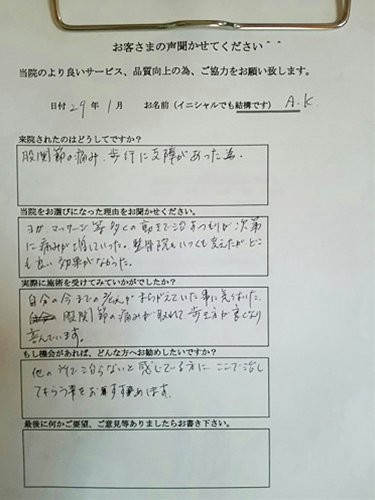 お客さまの声聞かせてください＾＾
当院のより良いサービス、品質向上の為、ご協力をお願い致します。
日付 29 年 1 月 お名前(イニシャルでも結構です) A.K
来院されたのはどうしてですか?
股関節の痛み、歩行に支障があった為。
当院をお選びになった理由をお聞かせください。
ヨガ、マッサージ等多くの動きで治るつもりが次第
に痛みが増していった。整骨院もいくつも変えたがどこ
も良い効果がなかった。
実際に施術を受けてみていかがでしたか?
自分の今までの歩き方がまちがえていた事に気付いた。
股関節の痛みが取れて歩き方も良くなり
喜んでいます。
もし機会があれば、どんな方へお勧めしたいですか?
他の所で治らないと感じている方に ここで治し
てもらう事をおすすめします。
最後に何かご要望、ご意見等ありましたらお書き下さい。